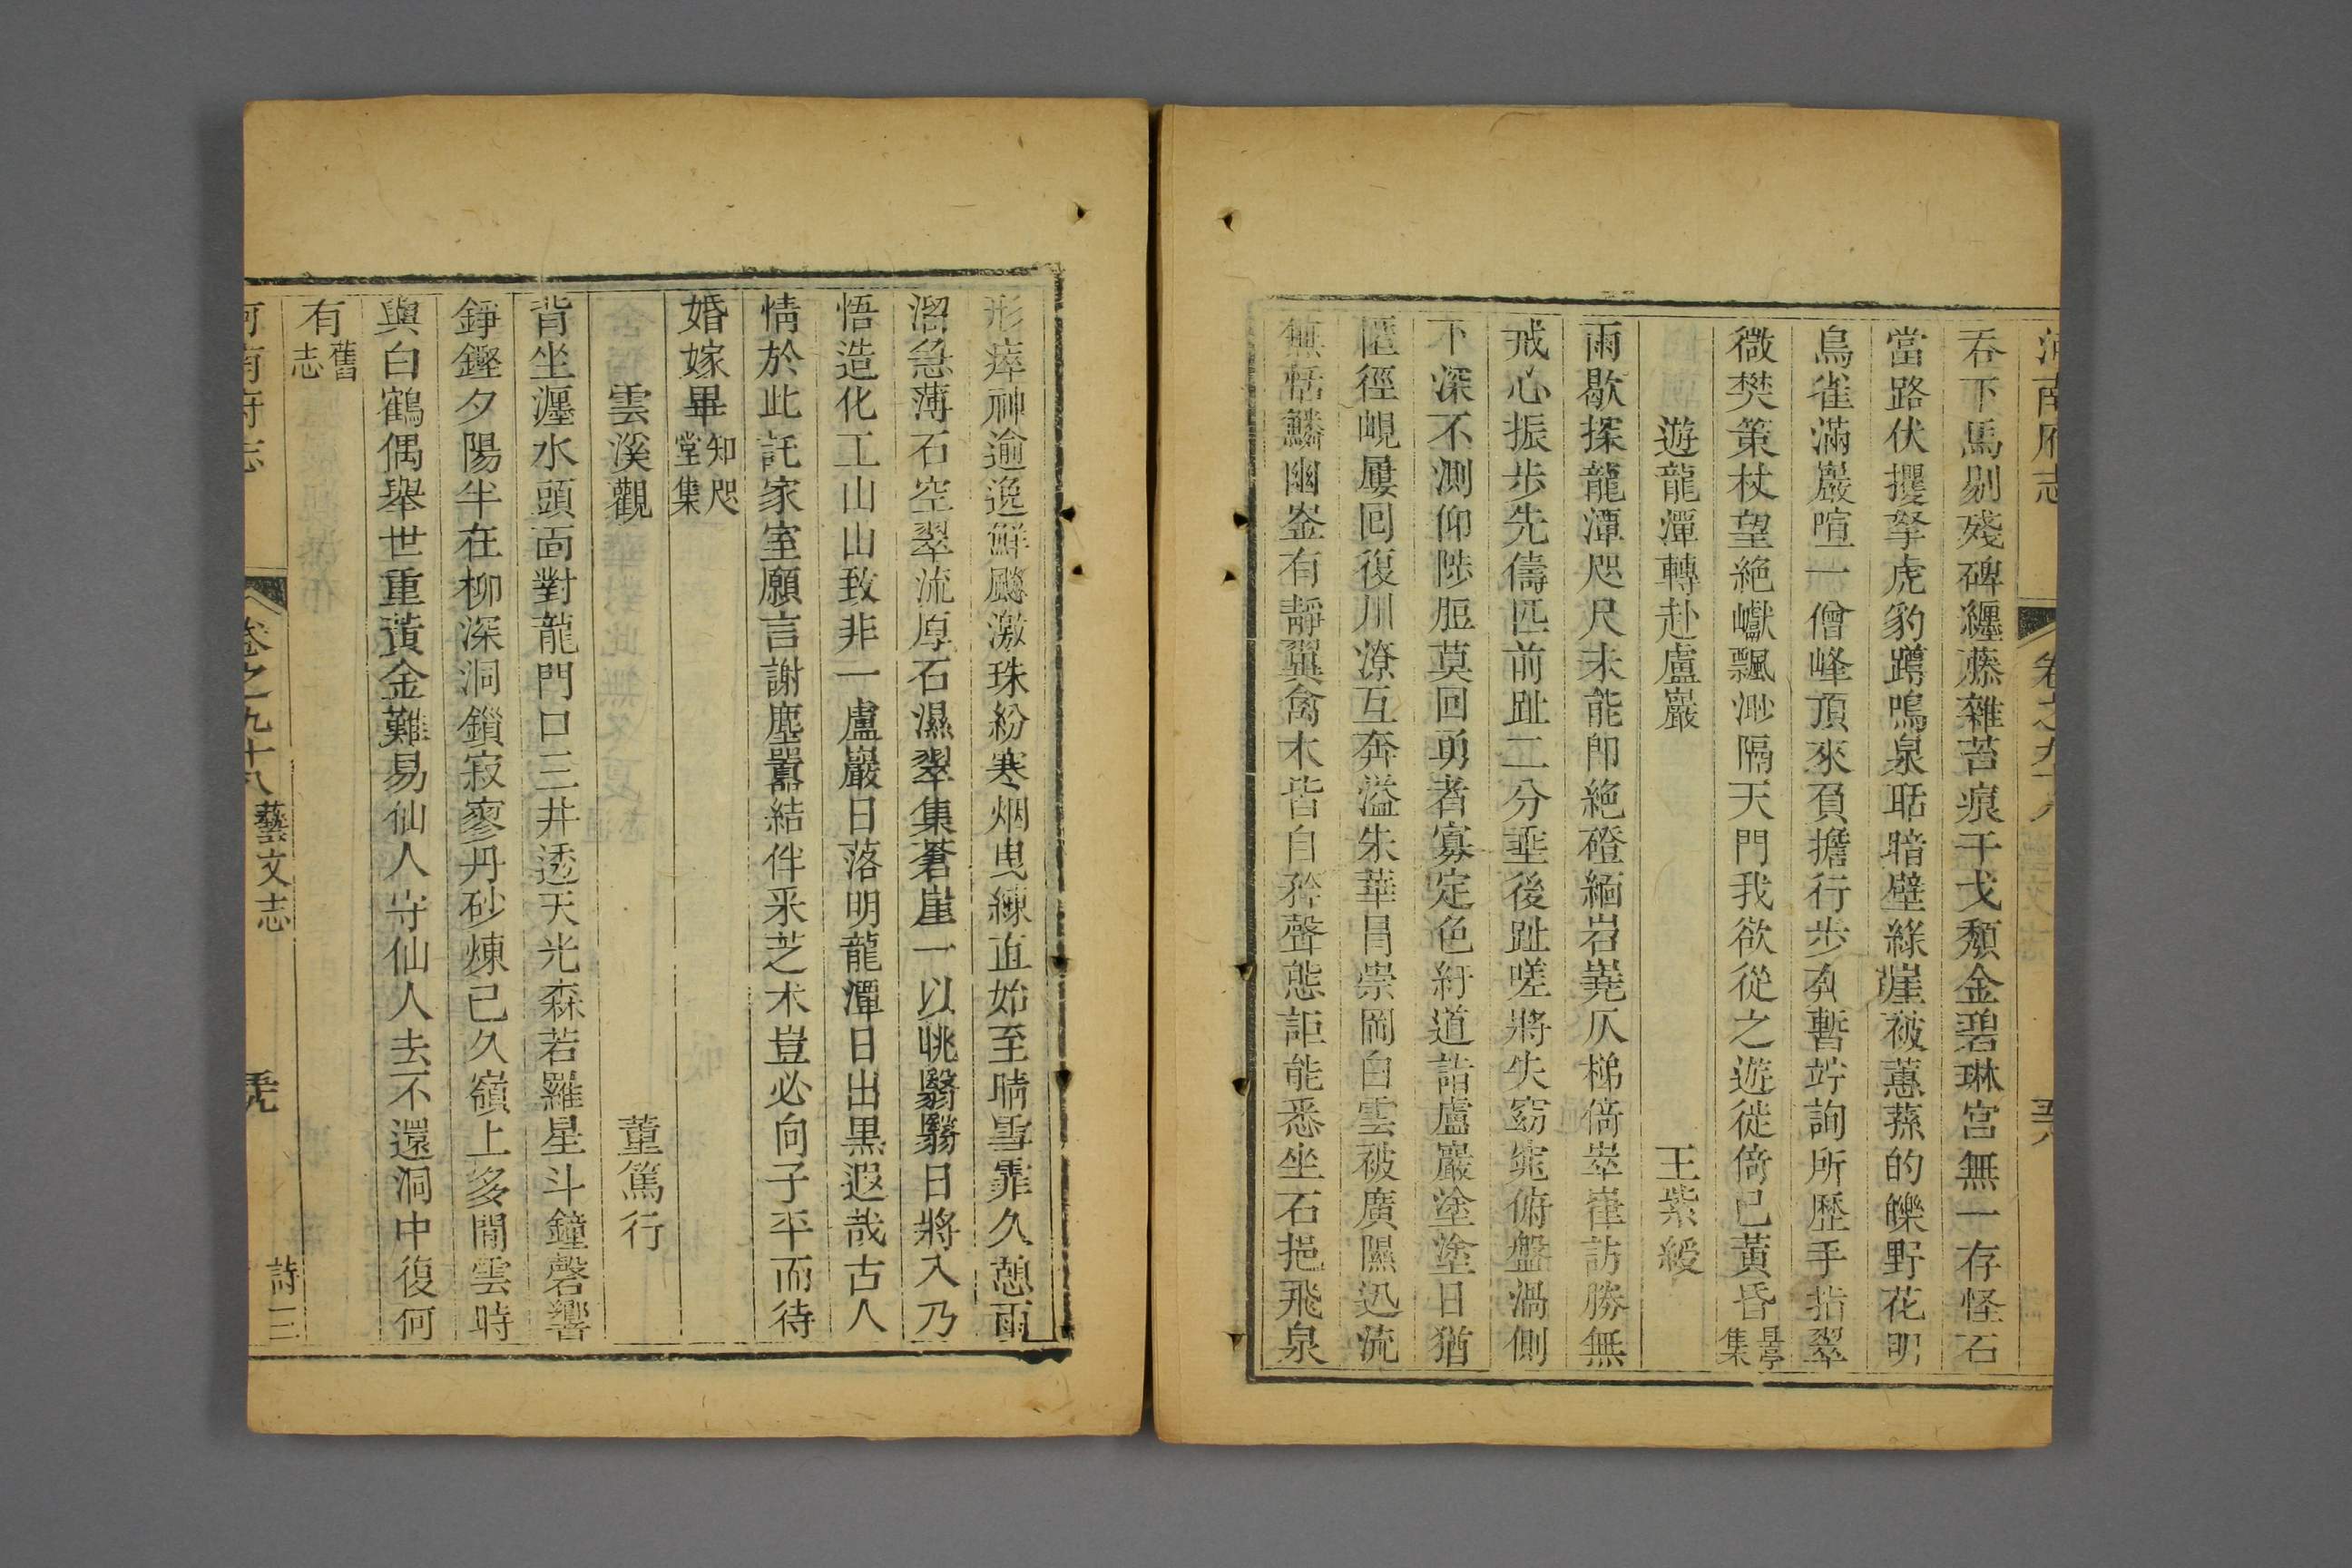 河南府志 卷之九十八 五八
吞下馬剔殘碑纒藤雜苔痕干戈頽金碧琳宫無一存怪石
當路伏攫拏虎豹蹲鳴泉聒暗壁綠崖被蕙蓀的皪野花明
鳥雀滿巖喧一僧峰頂來負擔行步奔暫竚詢所歷手指翠
微樊策杖望絶巘飄渺隔天門我欲從之遊徙倚已黄昏昃亭集
遊龍潭轉赴盧巖 王紫綬
雨歇探龍潭咫尺未能卽絶磴緬岩嶤仄梯倚崒嵂訪勝無
戒心振步先儔匹前趾二分垂後趾嗟將失窈窕俯盤渦側
下深不測仰陟脰莫回勇者寡定色紆道詰盧巖塗塗日猶
匿徑峴屢回復川潦互奔溢朱華冒崇岡白雲被廣隰迅流
無恬鱗幽崟有靜翼禽木皆自矜聲態詎能悉坐石挹飛泉
形瘁神逾逸鮮飈激珠紛寒烟曳練直始至晴雪霏久憩雨
溜急薄石空翠流厚石濕翠集蒼崖一以眺翳翳日將入乃
悟造化工山山致非一盧巖日落明龍潭日出黒遐哉古人
情於此託家室願言謝塵囂結伴釆芝朮豈必向子平而待
婚嫁畢知咫堂集
雲溪觀 董篤行
背坐瀍水頭面對龍門口三井透天光森若羅星斗鐘磬響
錚鏗夕陽半在柳深洞鎖寂寥丹砂煉已久嶺上多閒雲時
與白鶴偶舉世重黃金難易仙人守仙人去不還洞中復何
有舊志
河南府志 卷之九十八 藝文志 詩三